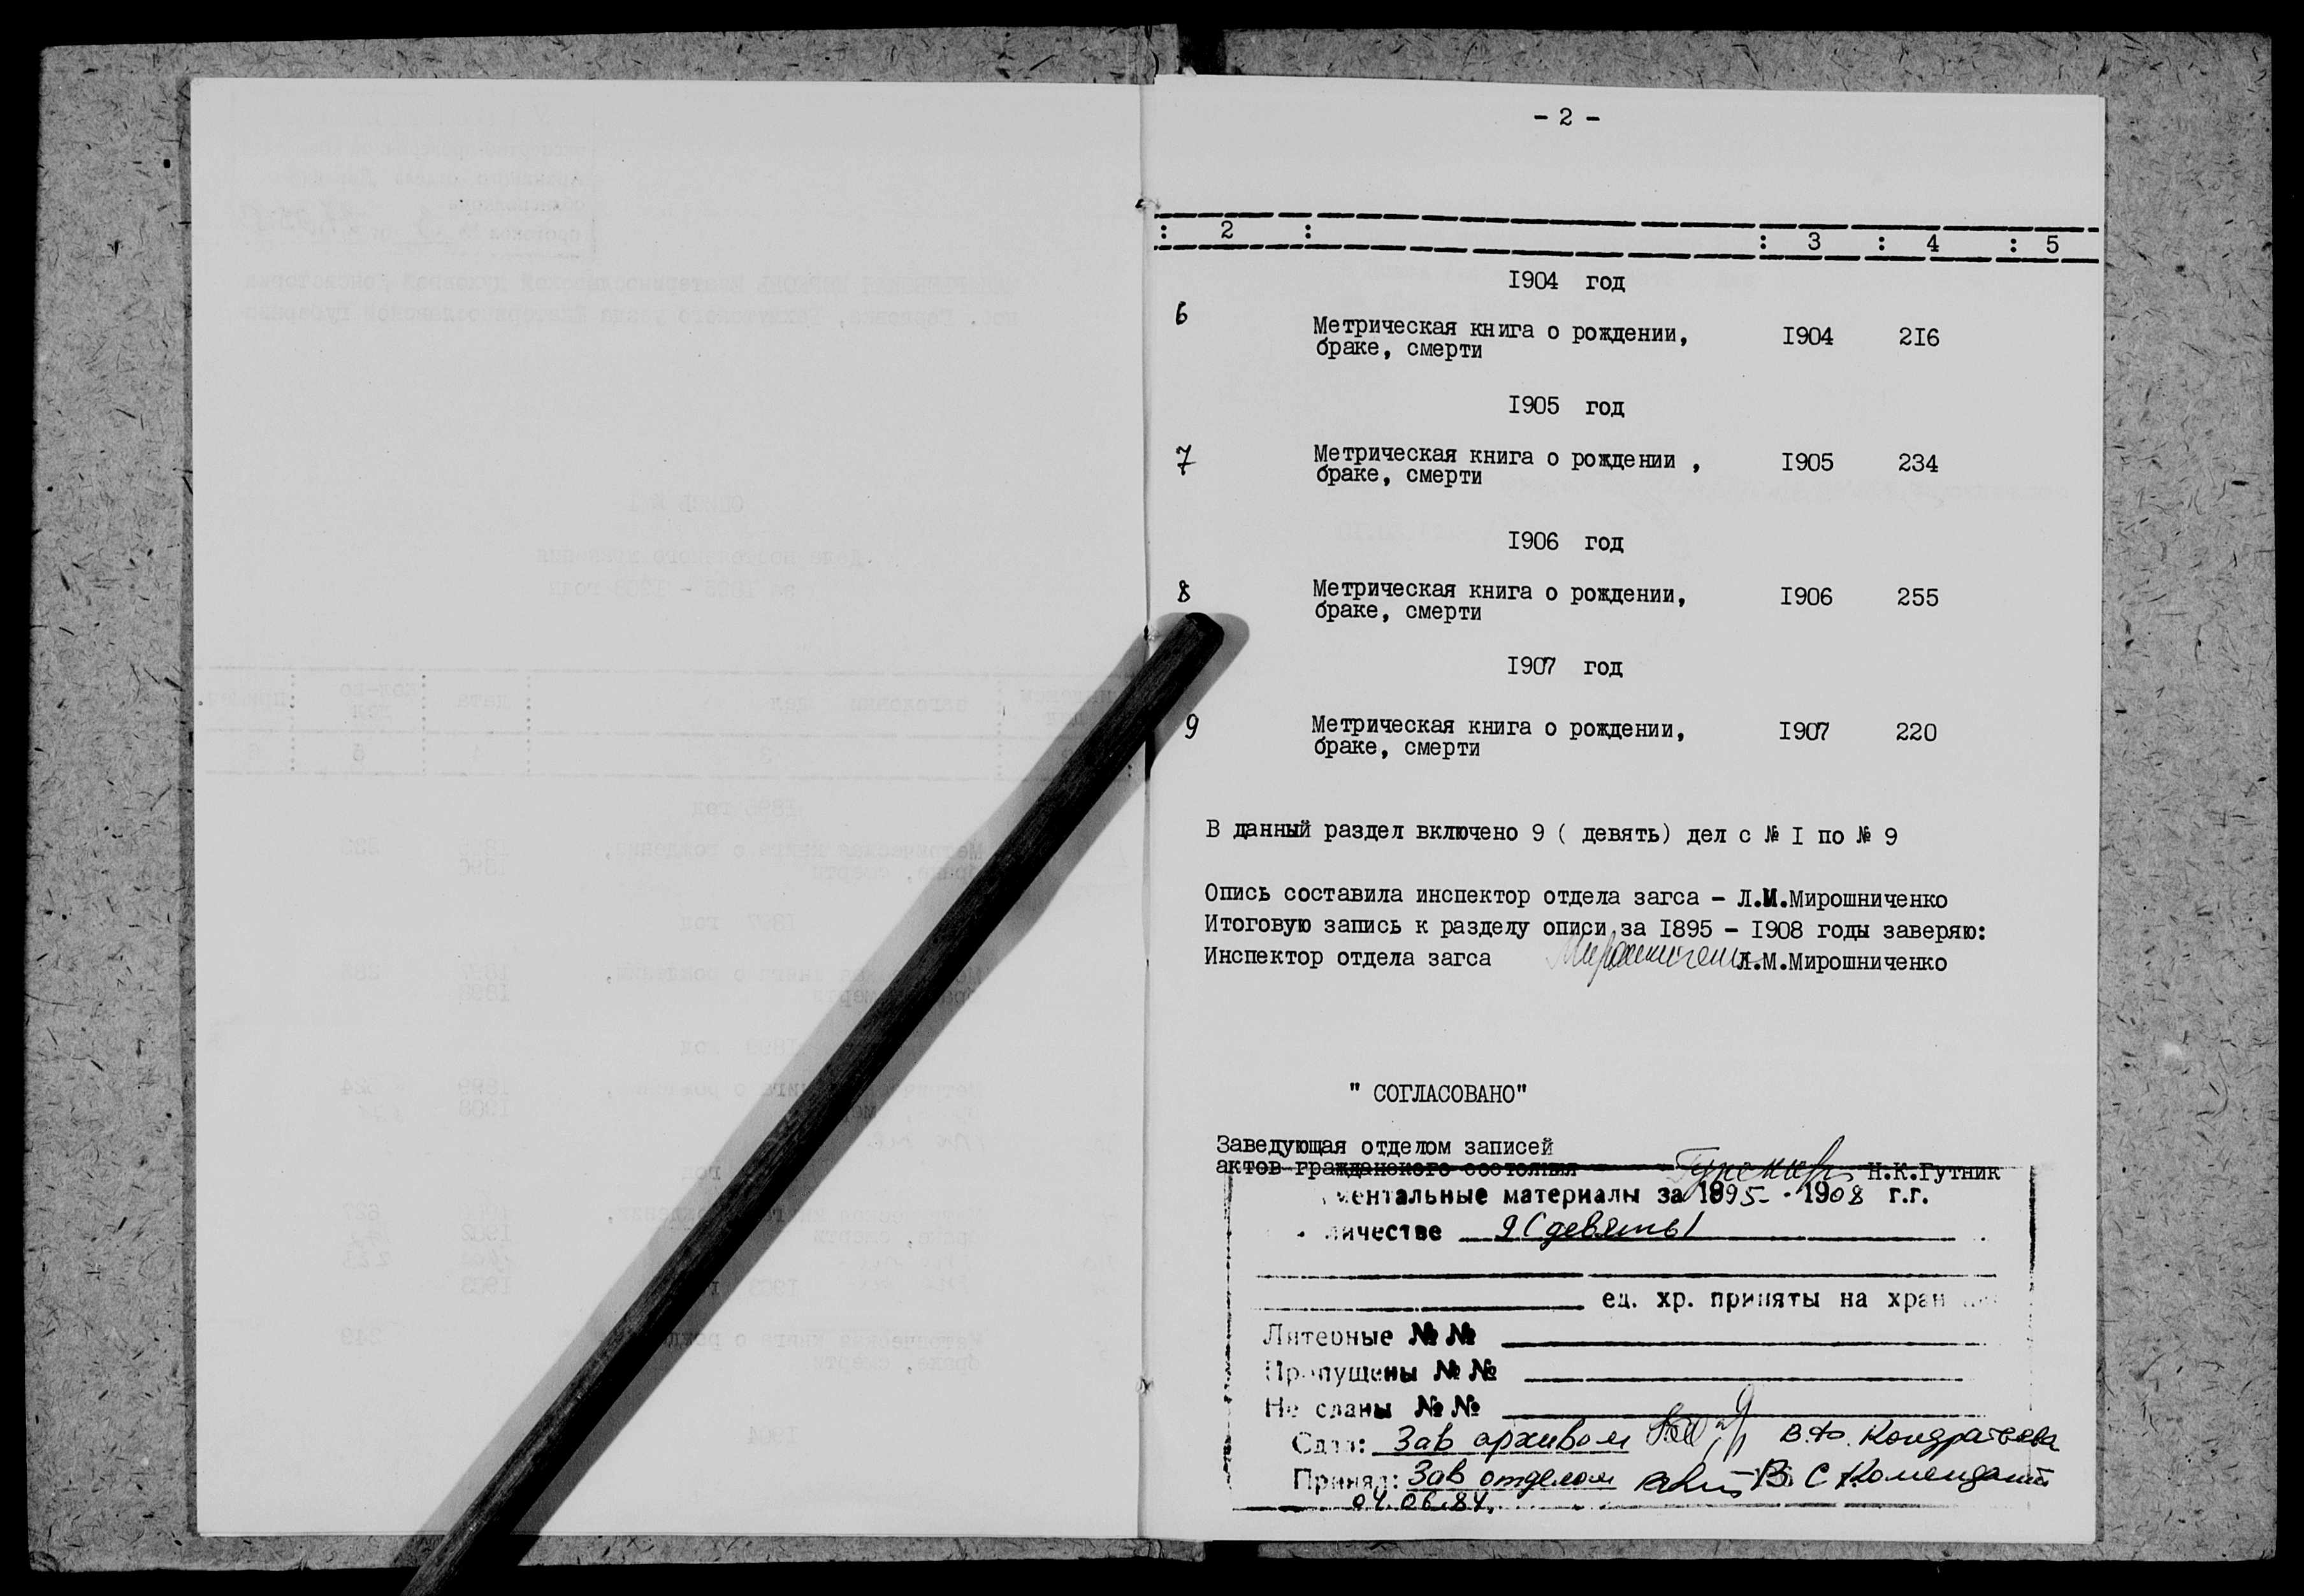 - 2 -
: 2 : : 3 : 4 : 5
I904 год
6 Метрическая книга о рождении, I904 2I6
браке, смерти
I905 год
7 Метрическая книга о рождении , I905 234
браке, смерти
I906 год
8 Метрическая книга о рождении, I906 255
браке, смерти
I907 год
9 Метрическая книга о рождении, I907 220
браке, смерти
В данный раздел включено 9 ( девять) дел с № I по № 9
Опись составила инспектор отдела загса - Л.М.Мирошниченко
Итоговую запись к разделу описи за I895 - I908 годы заверяю:
Инспектор отдела загса Л.М.Мирошниченко
" СОГЛАСОВАНО"
Заведующая отделом записей
актов гражданского состояния Н.К.Гутник
ментальные материалы за 1895 - 1908 г.г.
личестве 9 (девять)
ед. хр. приняты на хран
Литерные №№
Пропущены №№
Не сданы №№
Сдал: Зав архивом В.Ф. Кондратьева
Принял: Зав отделом В. С Комендант
04.06.84.